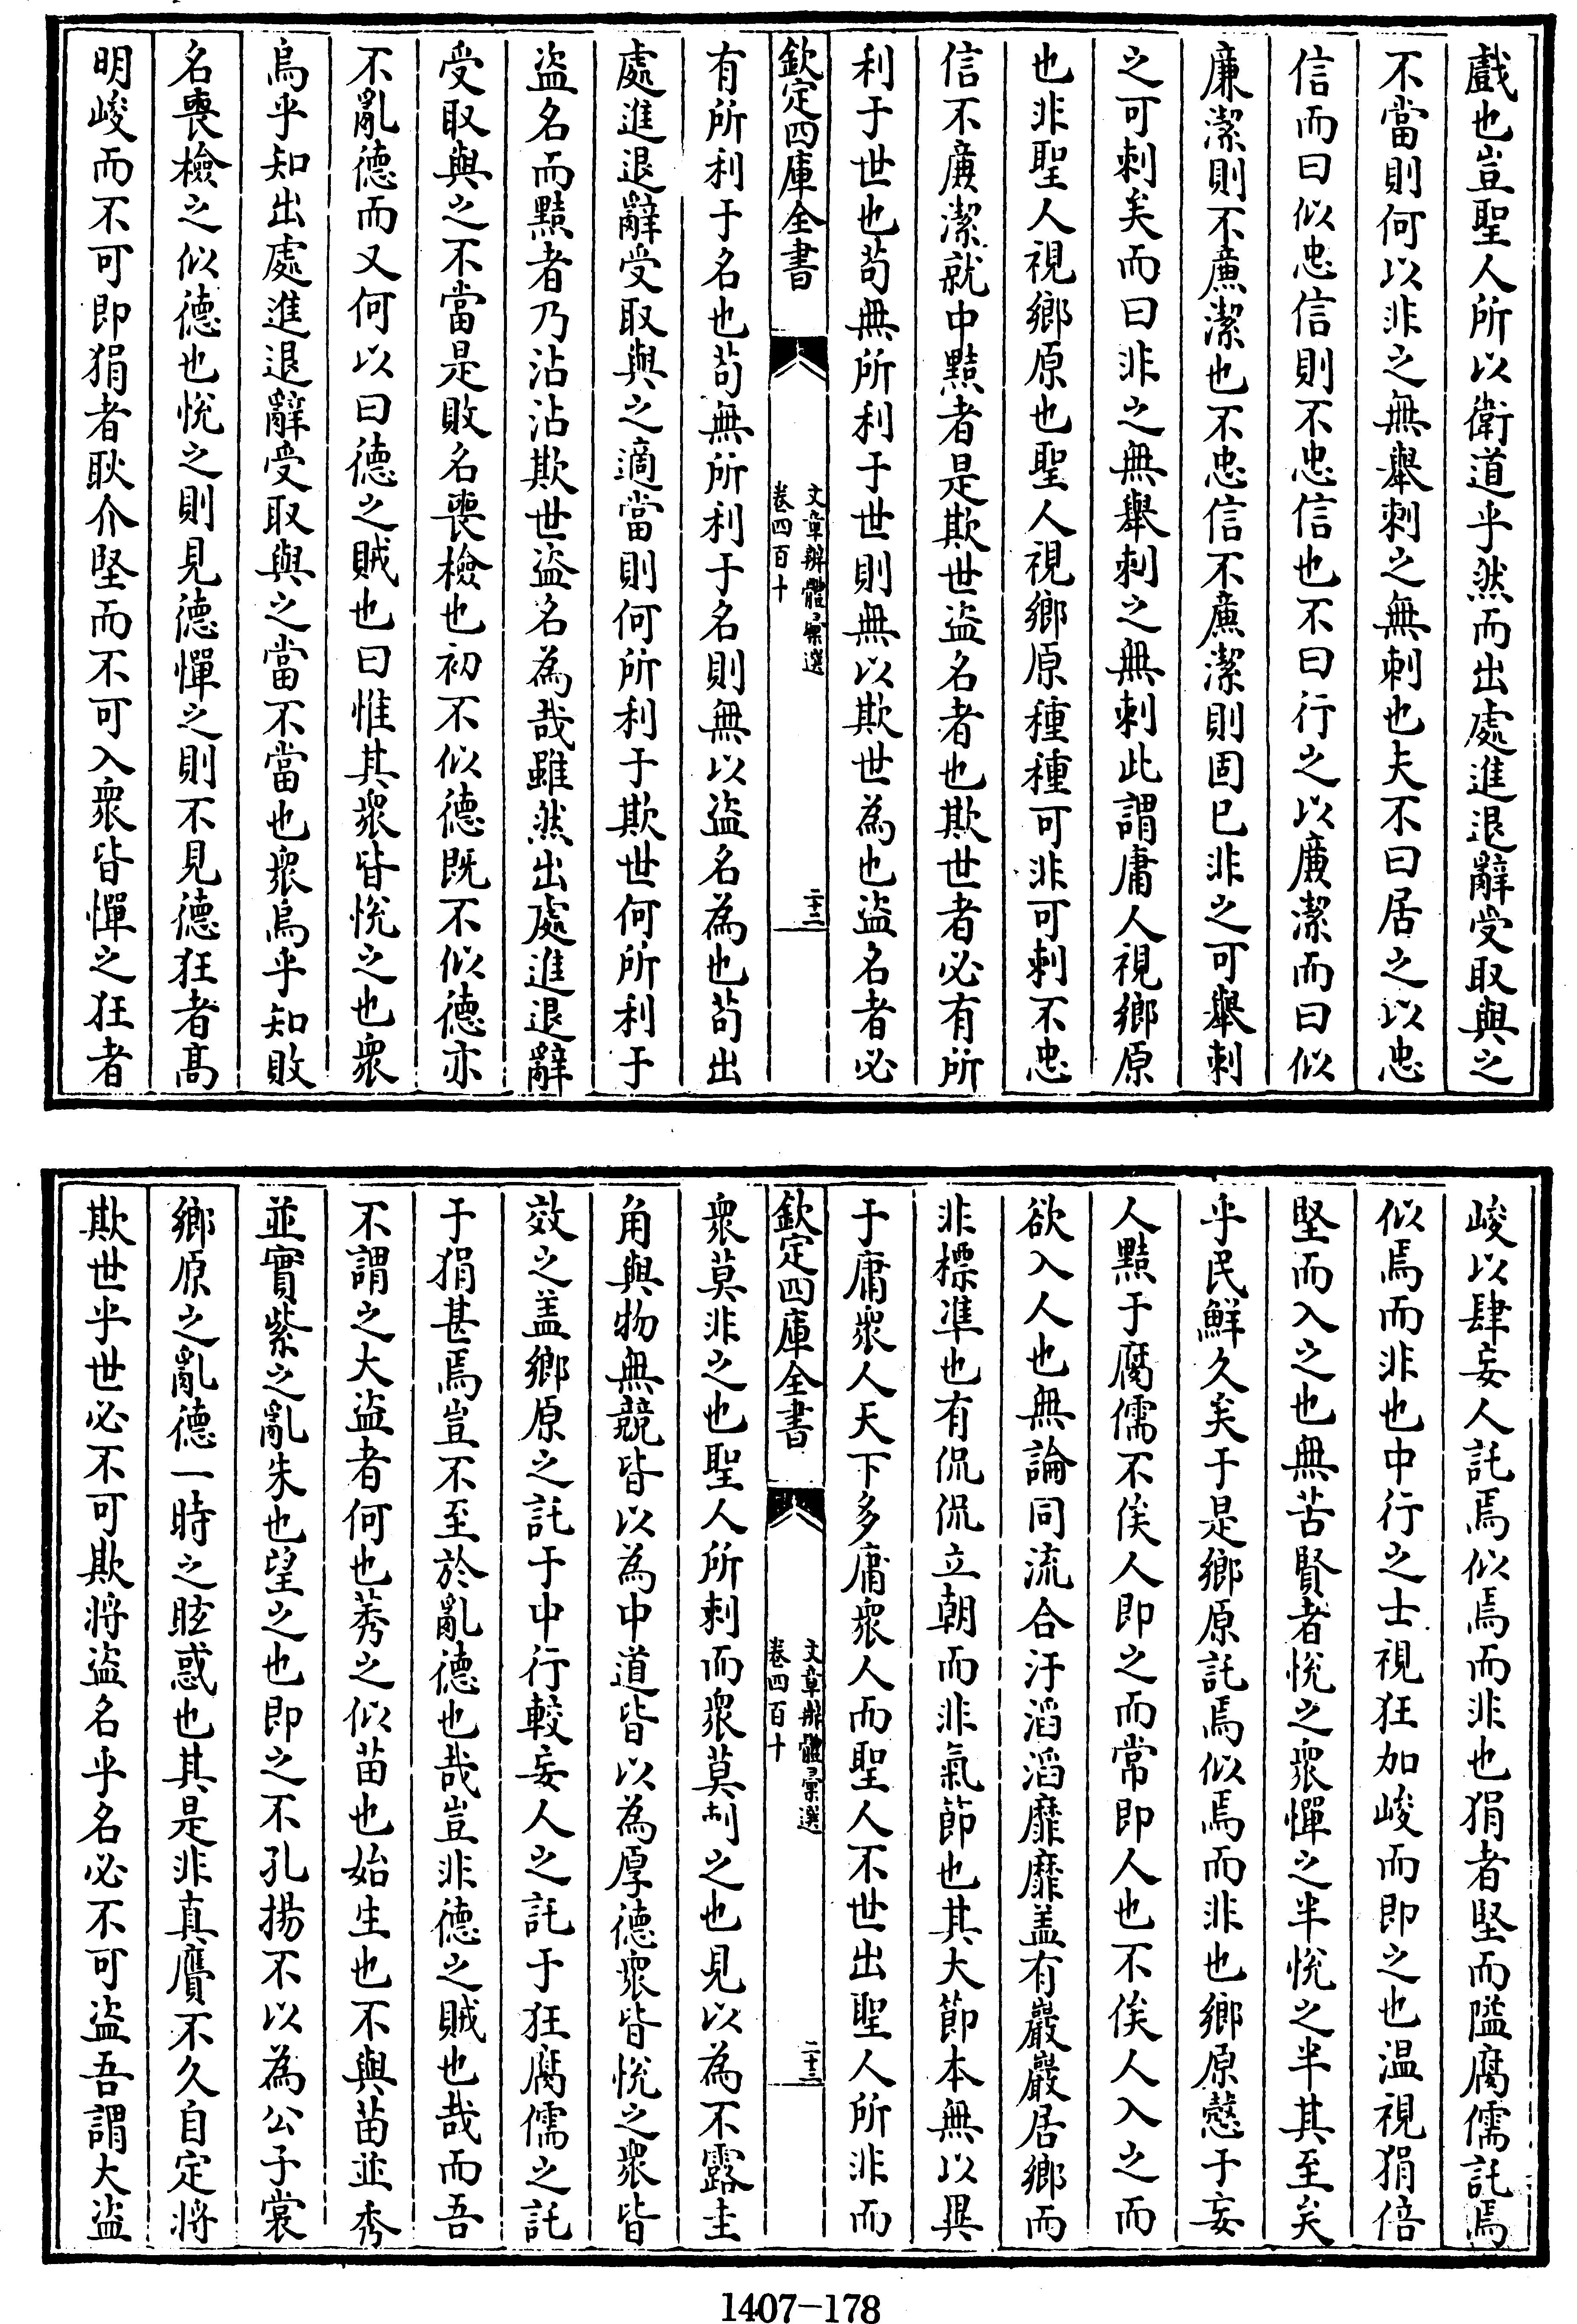 戲也豈聖人所以衛道乎然而出處進退辭受取與之
不當則何以非之無舉刺之無刺也夫不曰居之以忠
信而曰似忠信則不忠信也不曰行之以廉潔而曰似
廉潔則不廉潔也不忠信不廉潔則固已非之可舉刺
之可刺矣而曰非之無舉刺之無刺此謂庸人視鄉原
也非聖人視鄉原也聖人視鄉原種種可非可刺不忠
信不廉潔就中黠者是欺世盜名者也欺世者必有所
利于世也苟無所利于世則無以欺世為也盜名者必
欽定四庫全書
文章辨體彙選
卷四百十
二十二
有所利于名也苟無所利于名則無以盜名為也苟出
處進退辭受取與之適當則何所利于欺世何所利于
盜名而黠者乃沾沾欺世盜名為哉雖然出處進退辭
受取與之不當是敗名喪檢也初不似德既不似德亦
不亂德而又何以曰德之賊也曰惟其衆皆悅之也衆
烏乎知出處進退辭受取與之當不當也衆烏乎知敗
名喪檢之似德也悅之則見德憚之則不見德狂者高
明峻而不可即狷者耿介堅而不可入衆皆憚之狂者
峻以肆妄人託焉似焉而非也狷者堅而隘腐儒託焉
似焉而非也中行之士視狂加峻而即之也溫視狷倍
堅而入之也無苦賢者悅之衆憚之半悅之半其至矣
乎民鮮久矣于是鄉原託焉似焉而非也鄉原慧于妄
人黠于腐儒不俟人即之而常即人也不俟人入之而
欲入人也無論同流合汙滔滔靡靡盖有巖巖居鄉而
非標準也有侃侃立朝而非氣節也其大節本無以異
于庸衆人天下多庸衆人而聖人不世出聖人所非而
欽定四庫全書
文章辨體彙選
卷四百十
二十三
衆莫非之也聖人所刺而衆莫刺之也見以為不露圭
角與物無競皆以為中道皆以為厚德衆皆悅之衆皆
效之盖鄉原之託于中行較妄人之託于狂腐儒之託
于狷甚焉豈不至於亂德也哉豈非德之賊也哉而吾
不謂之大盜者何也莠之似苗也始生也不與苗並秀
並實紫之亂朱也望之也即之不孔揚不以為公子裳
鄉原之亂德一時之眩惑也其是非真贋不久自定將
欺世乎世必不可欺將盜名乎名必不可盜吾謂大盜
1407-178